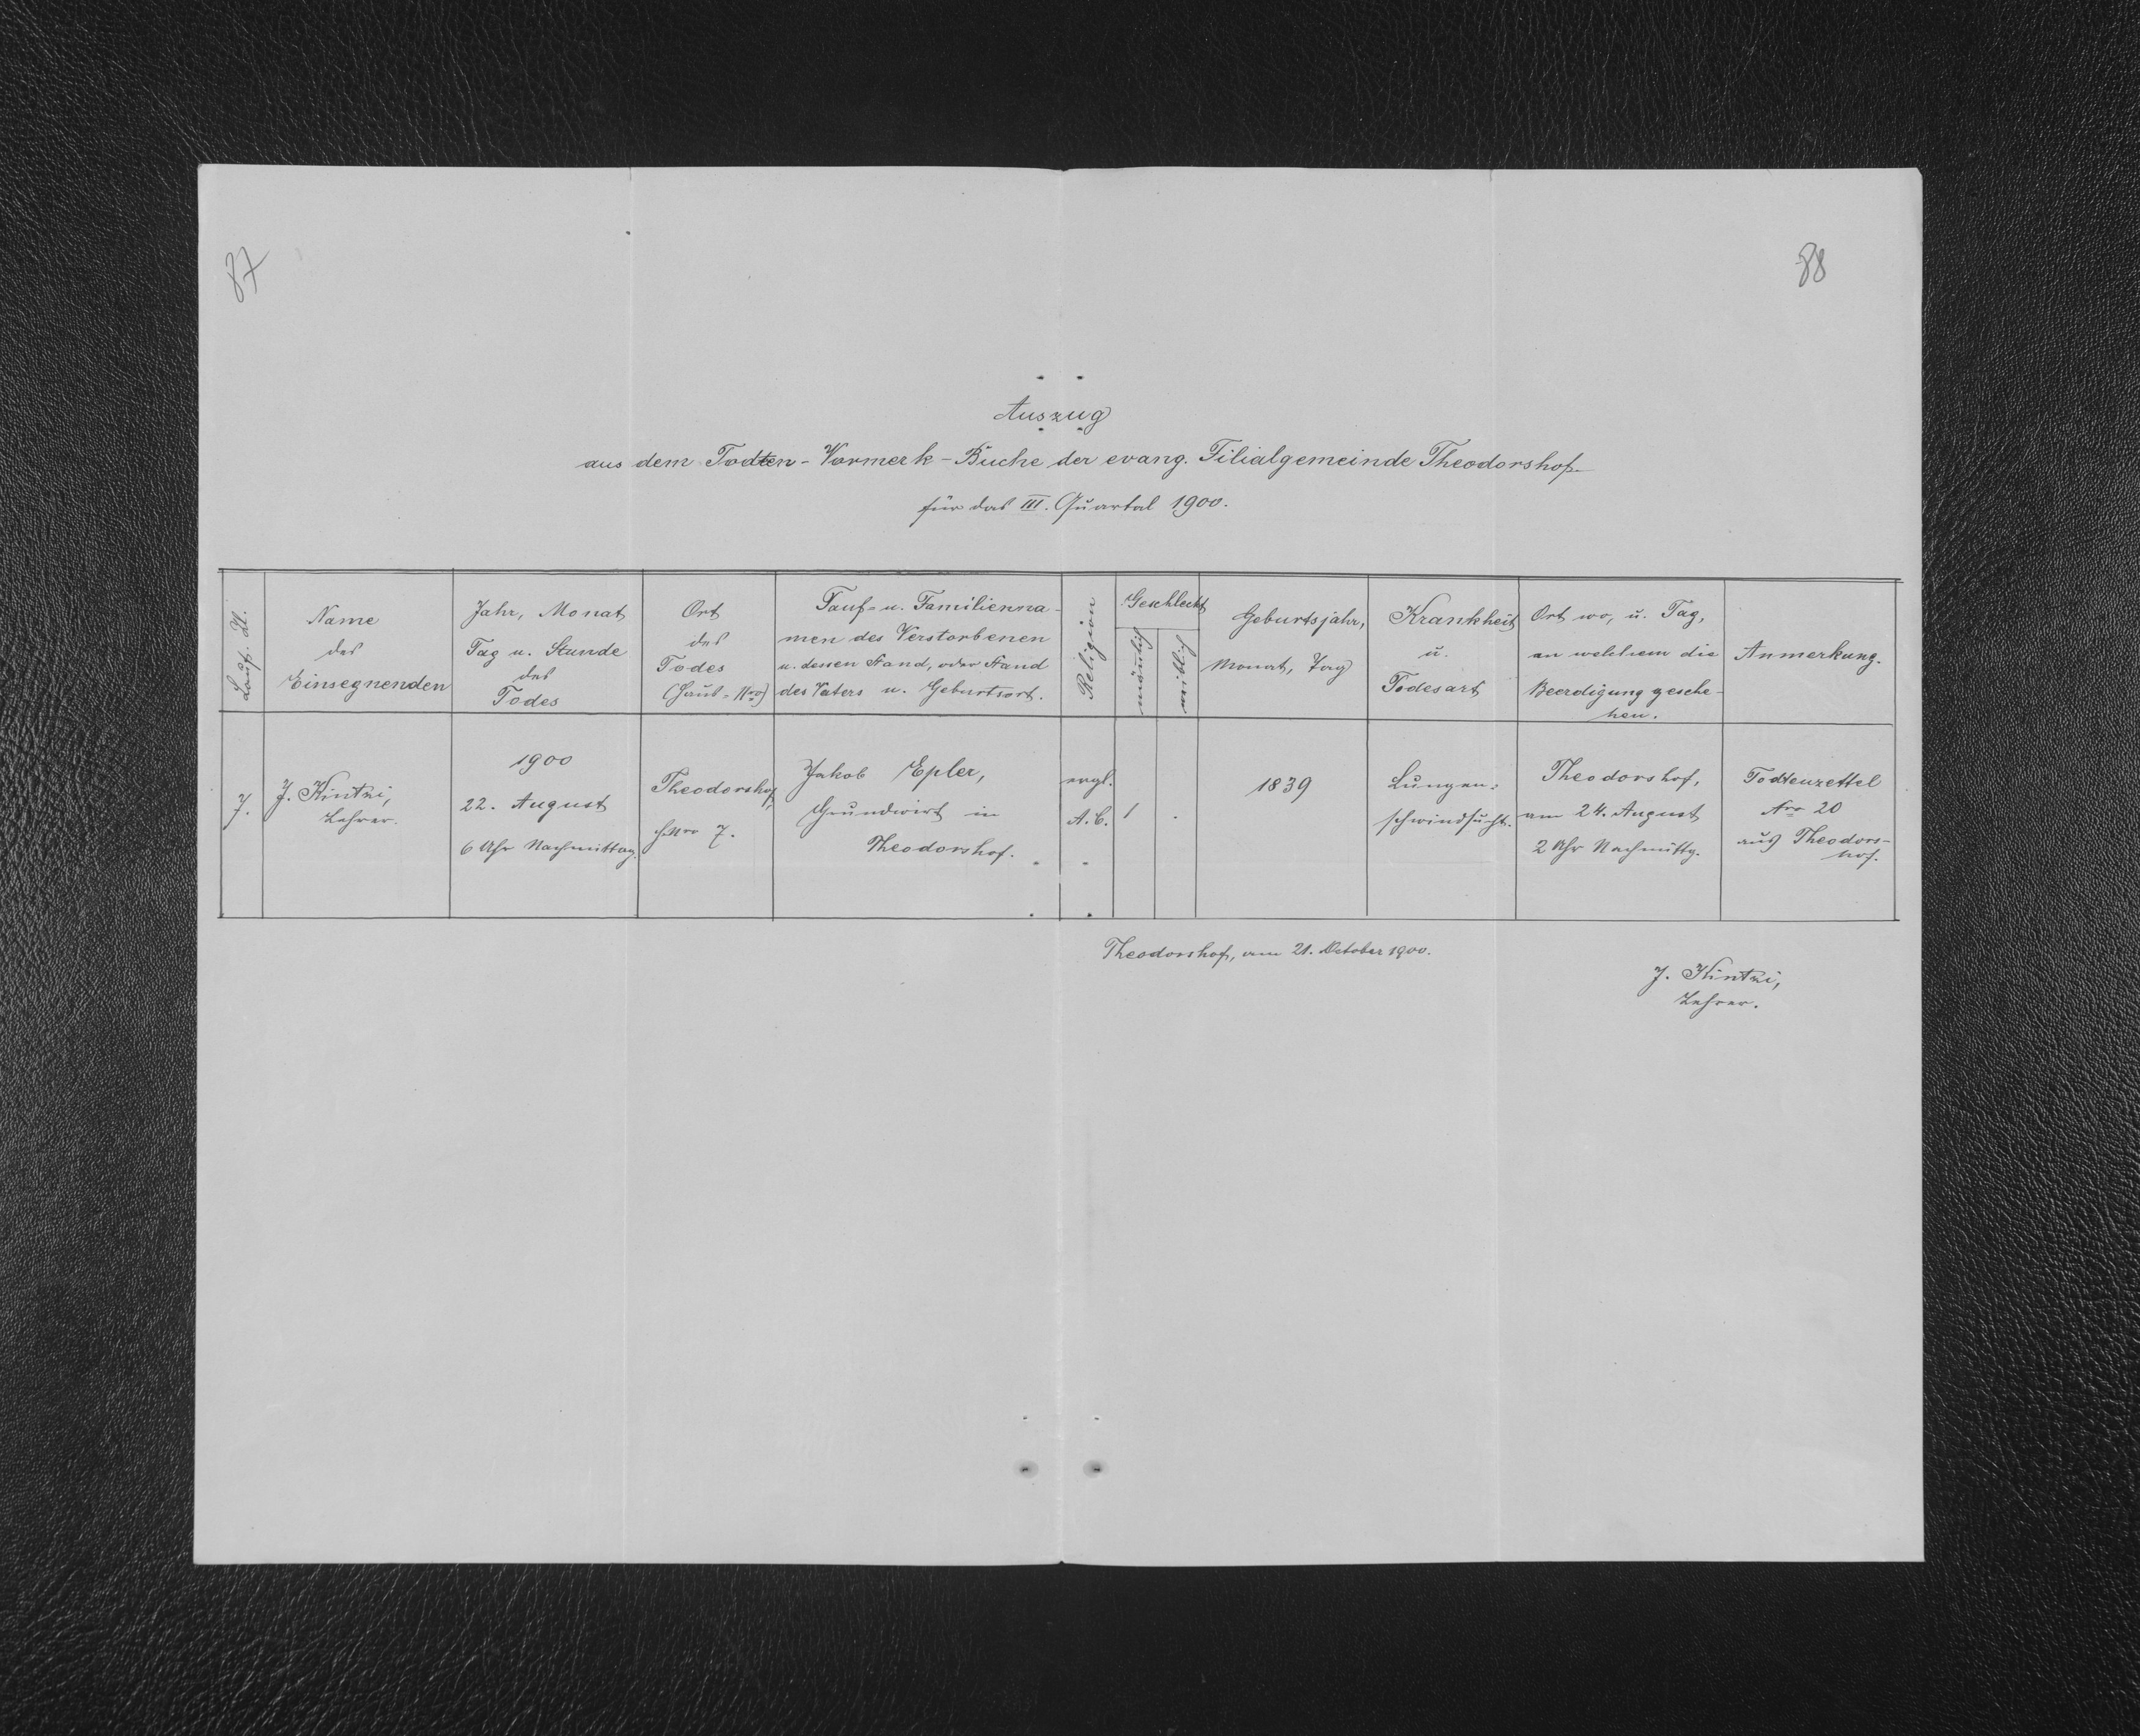 87
88
Auszug
aus dem Todten-Vormerk-Buche der evang. Filialgemeinde Theodorshof
für das III. Quartal 1900.
Lauf. Zl.
Name
des
Einsegnenden
Jahr, Monat
Tag u. Stunde
des
Todes
Ort
des
Todes
(Haus-Nro)
Tauf- u. Familienna-
men des Verstorbenen
u. dessen Stand, oder Stand
des Vaters u. Geburtsort.
Religion
Geschlecht
männlich
weiblich
Geburtsjahr,
Monat, Tag
Krankheit
u.
Todesart
Ort wo, u. Tag,
an welchem die
Beerdigung gesche-
hen.
Anmerkung.
7.
J. Kintzi,
Lehrer.
1900
22. August
6 Uhr Nachmittag.
Theodorshof,
HNro 7.
Jakob Epler,
Grundwirt in
Theodorshof.
evgl.
A.C.
1
.
1839
Lungen-
schwindsucht.
Theodorshof,
am 24. August
2 Uhr Nachmittg.
Todtenzettel
Nro 20
aus Theodors-
hof.
Theodorshof, am 21. October 1900.
J. Kintzi,
Lehrer.